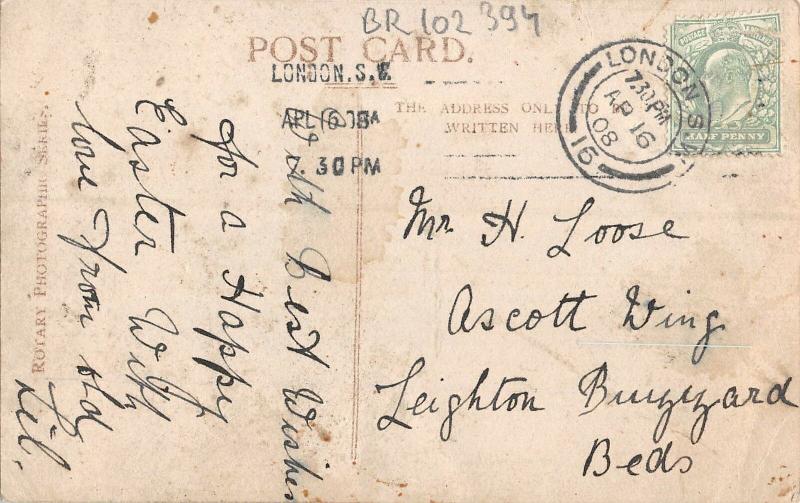 BR 102 394
POST CARD.
LONDON. S.W.
7. 30 PM
THE ADDRESS ONLY TO BE
WRITTEN HERE
LONDON S.W.
7.30 PM
AP 16
08
16
POSTAGE
HALF PENNY
ROTARY PHOTOGRAPHIC SERIES.
With Best Wishes
for a Happy
Easter With
love from old
Lil.
Mr. H. Loose
Ascott Wing
Leighton Buzzard
Beds